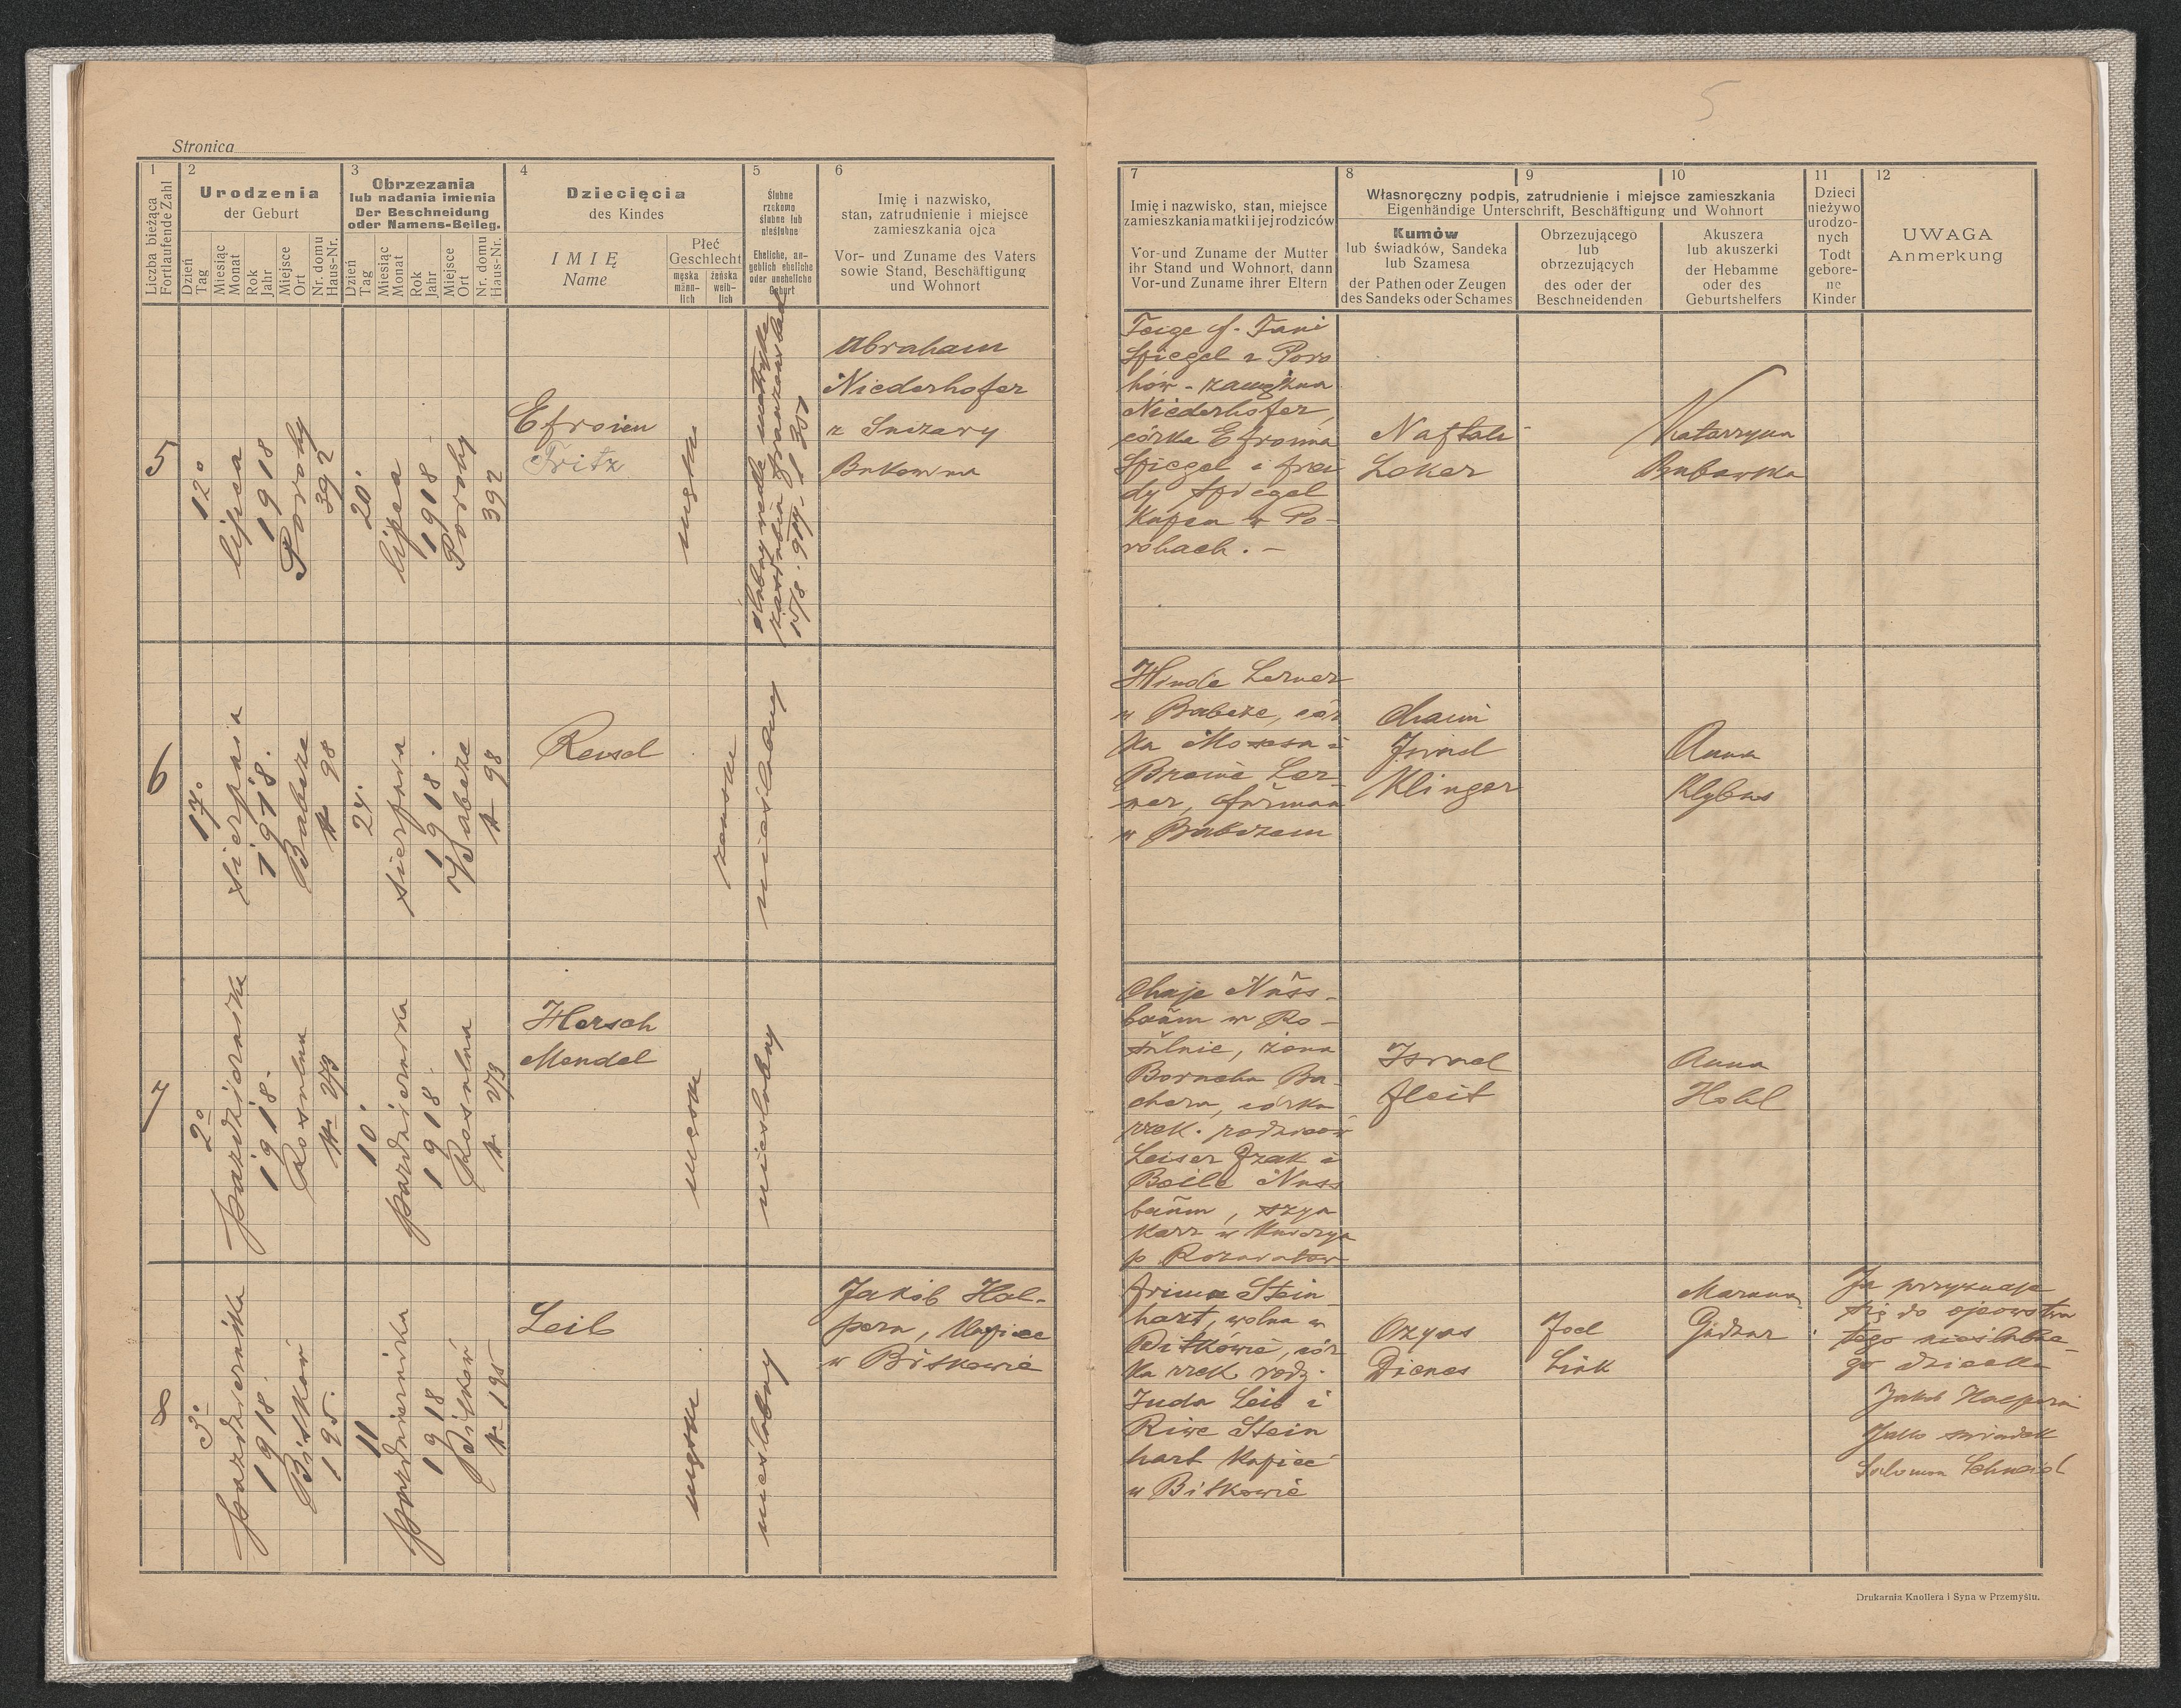 5
Stronica
1
Liczba bieżąca
Fortlaufende Zahl
2
Urodzenia
der Geburt
Dzień
Tag
Miesiąc
Monat
Rok
Jahr
Miejsce
Ort
Nr. domu
Haus-Nr.
3
Obrzezania
lub nadania imienia
Der Beschneidung
oder Namens-Beileg.
Dzień
Tag
Miesiąc
Monat
Rok
Jahr
Miejsce
Ort
Nr. domu
Haus-Nr.
4
Dziecięcia
des Kindes
IMIĘ
Name
Płeć
Geschlecht
męska
männ-
lich
żeńska
weib-
lich
5
Ślubne
rzekomo
ślubne lub
nieślubne
Eheliche, an-
geblich eheliche
oder uneheliche
Geburt
6
Imię i nazwisko,
stan, zatrudnienie i miejsce
zamieszkania ojca
Vor- und Zuname des Vaters
sowie Stand, Beschäftigung
und Wohnort
7
Imię i nazwisko, stan, miejsce
zamieszkania matki i jej rodziców
Vor-und Zuname der Mutter
ihr Stand und Wohnort, dann
Vor-und Zuname ihrer Eltern
8
9
10
Własnoręczny podpis, zatrudnienie i miejsce zamieszkania
Eigenhändige Unterschrift, Beschäftigung und Wohnort
Kumów
lub świadków, Sandeka
lub Szamesa
der Pathen oder Zeugen
des Sandeks oder Schames
Obrzezującego
lub
obrzezujących
des oder der
Beschneidenden
Akuszera
lub akuszerki
der Hebamme
oder des
Geburtshelfers
11
Dzieci
nieżywo
urodzo-
nych
Todt
gebore-
ne
Kinder
12
UWAGA
Anmerkung
5
12
lipca
1918
Porohy
392
20.
lipca
1918
Porohy
392
Efroim
Fritz
męska
Abraham
Niederhofer
z
Bukowina
Feige f. Fani
Spiegel z Poro
hów - zamężna
Niederhofer,
córka Efroima
Spiegel i Frei
dy Spiegel
Kupca w Po-
rohach. -
Naftali
Loker
Katarzyna
Bubawska
6
17.
sierpnia
1918.
Babcze
N 98
24.
sierpnia
1918.
Babcze
N 98
Reisel
żeńska
nieślubny
Hinde Lerner
w Babcze, cór
ka Mosesa i
Ler
ner,
w Babczem
Chaim
Israel
Klinger
Anna
Klybus
7
2
października
1918.
Rosulna
N 273
10.
października
1918.
Rosulna
N. 273
Hersch
Mendel
męska
nieślubny
Chaje Nuss-
baum w Ro-
sulnie, żona
Boracha Ba
chera, córka
rzek. rodziców
Leiser Izak i
Beile Nuss
baum, szyn
karz w
p Rozniatów
Israel
Fleit
Anna
Hohl
8
3
października
1918.
Bitków
195.
11
października
1918
Bitków
N 195
Leib
męska
nieślubny
Jakób Hal-
pern, Kupiec
w Bitkowie
Frima Stein
hart, wolna w
Bitkowie, cór
ka rzek rodz.
Juda Leib i
Riwe Stein
hart Kupiec
w Bitkowie
Ozyas
Dienes
Joel
Link
Ja przyznaję
się do ojcowstwa
tego nieślubne-
go dziecka
Jakób Halpern
Jako świadek
Salomon
Drukarnia Knollera i Syna w Przemyślu.